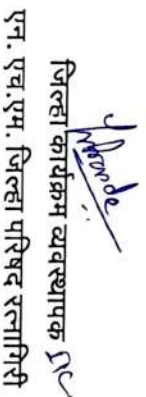 जिल्हा कार्यक्रम व्यवस्थापक
एन. एच.एम. जिल्हा परिषद रत्नागिरी